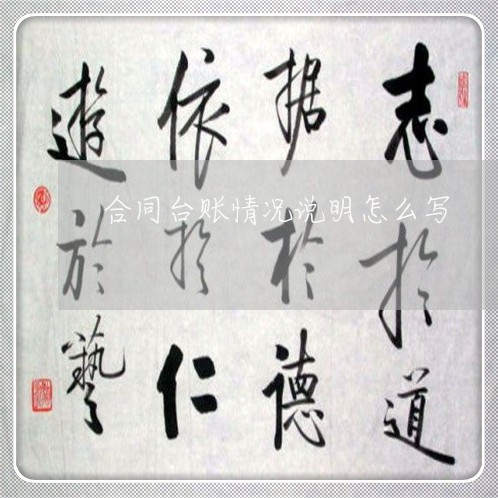 志於道
据於德
依於仁
遊於藝
合同台账情况说明怎么写